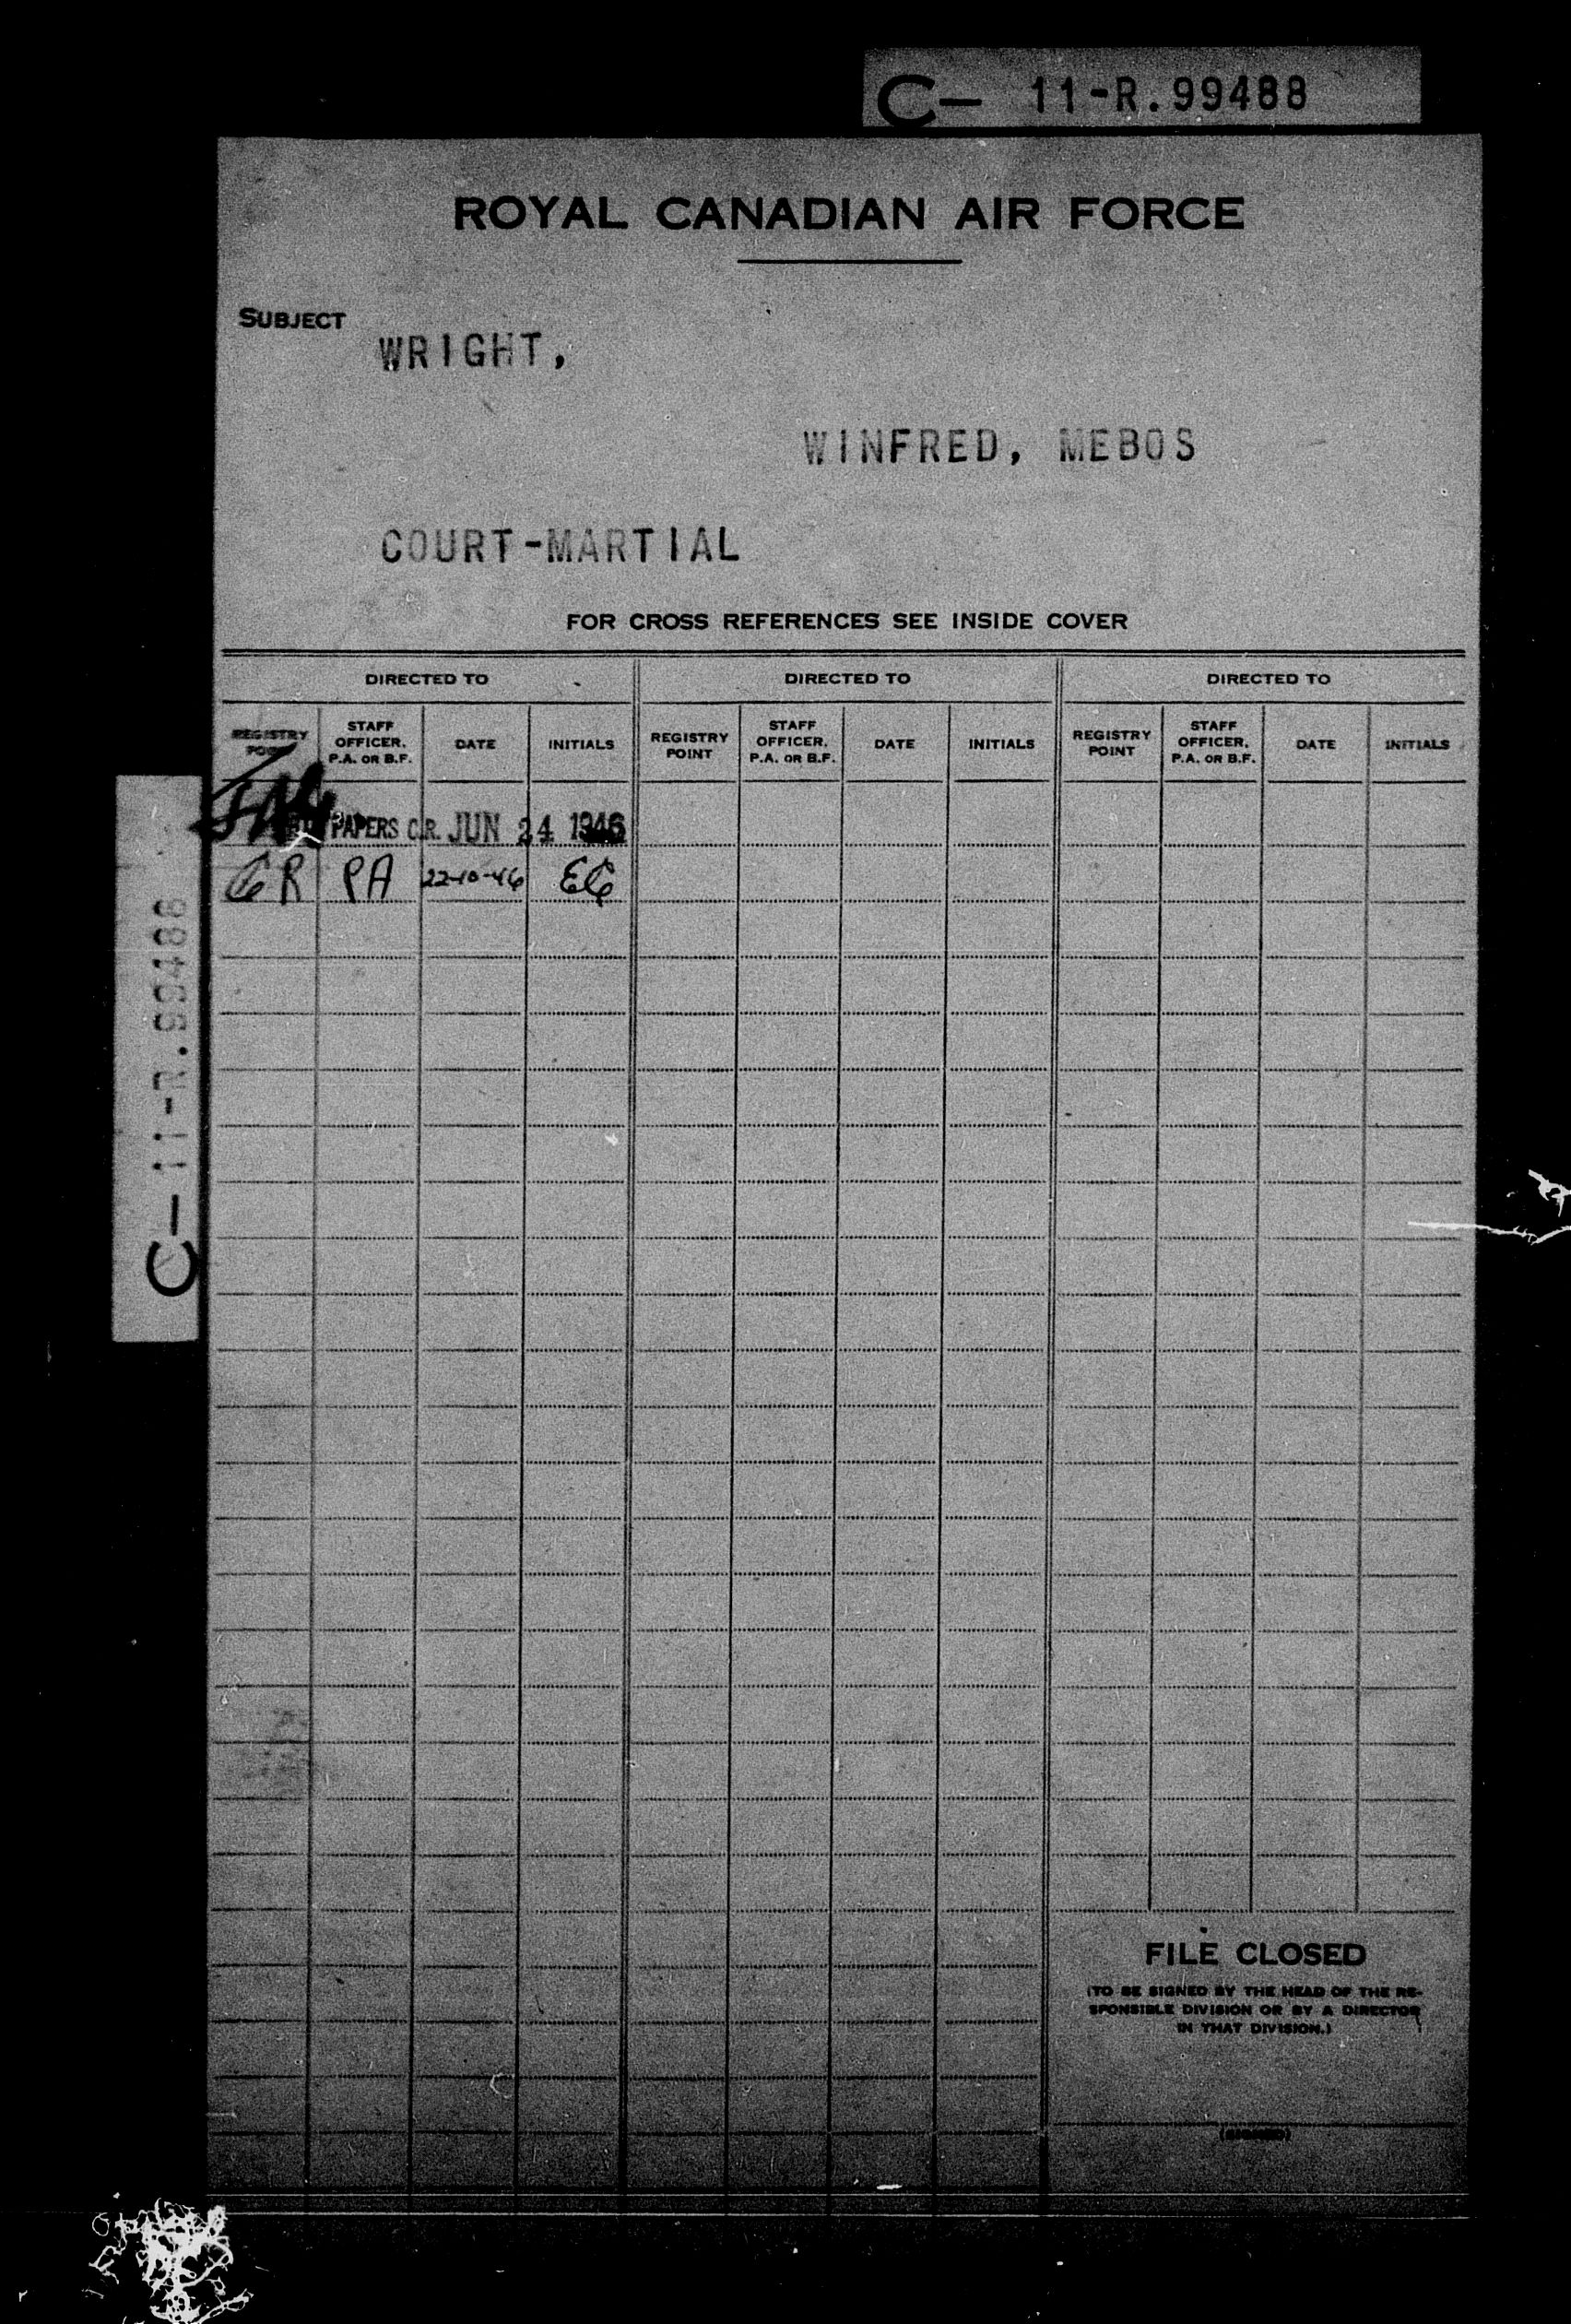 C- 11-R.99488
ROYAL CANADIAN AIR FORCE
SUBJECT
WRIGHT,
WINFRED, MEBOS
COURT-MARTIAL
FOR CROSS REFERENCES SEE INSIDE COVER
DIRECTED TO DIRECTED TO DIRECTED TO
REGISTRY POINT STAFF OFFICER, P.A. OR B.F. DATE INITIALS REGISTRY POINT STAFF OFFICER, P.A. OR B.F. DATE INITIALS REGISTRY POINT STAFF OFFICER, P.A. OR B.F. DATE INITIALS
PAPERS C.R. JUN 24 1946
CR PA 22-10-46 EC
C-11-R.99488
FILE CLOSED
(TO BE SIGNED BY THE HEAD OF THE RE-
SPONSIBLE DIVISION OR BY A DIRECTOR
IN THAT DIVISION.)
(SIGNED)